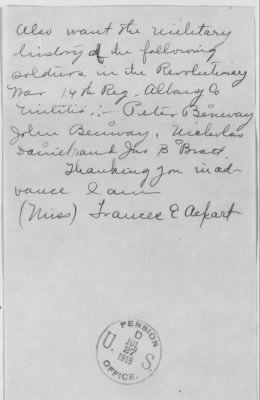 Also want the military
history of the following
soldiers in the Revolutionary
War 14th Reg. Albany Co
Militia,:- Peter Benway
John Benway, Nicholas
Daniels and Jno S Bratt.
Thanking you in ad
vance I am
(Miss) Frances E
PENSION
U. S.
D
JUL
27
1915
OFFICE.